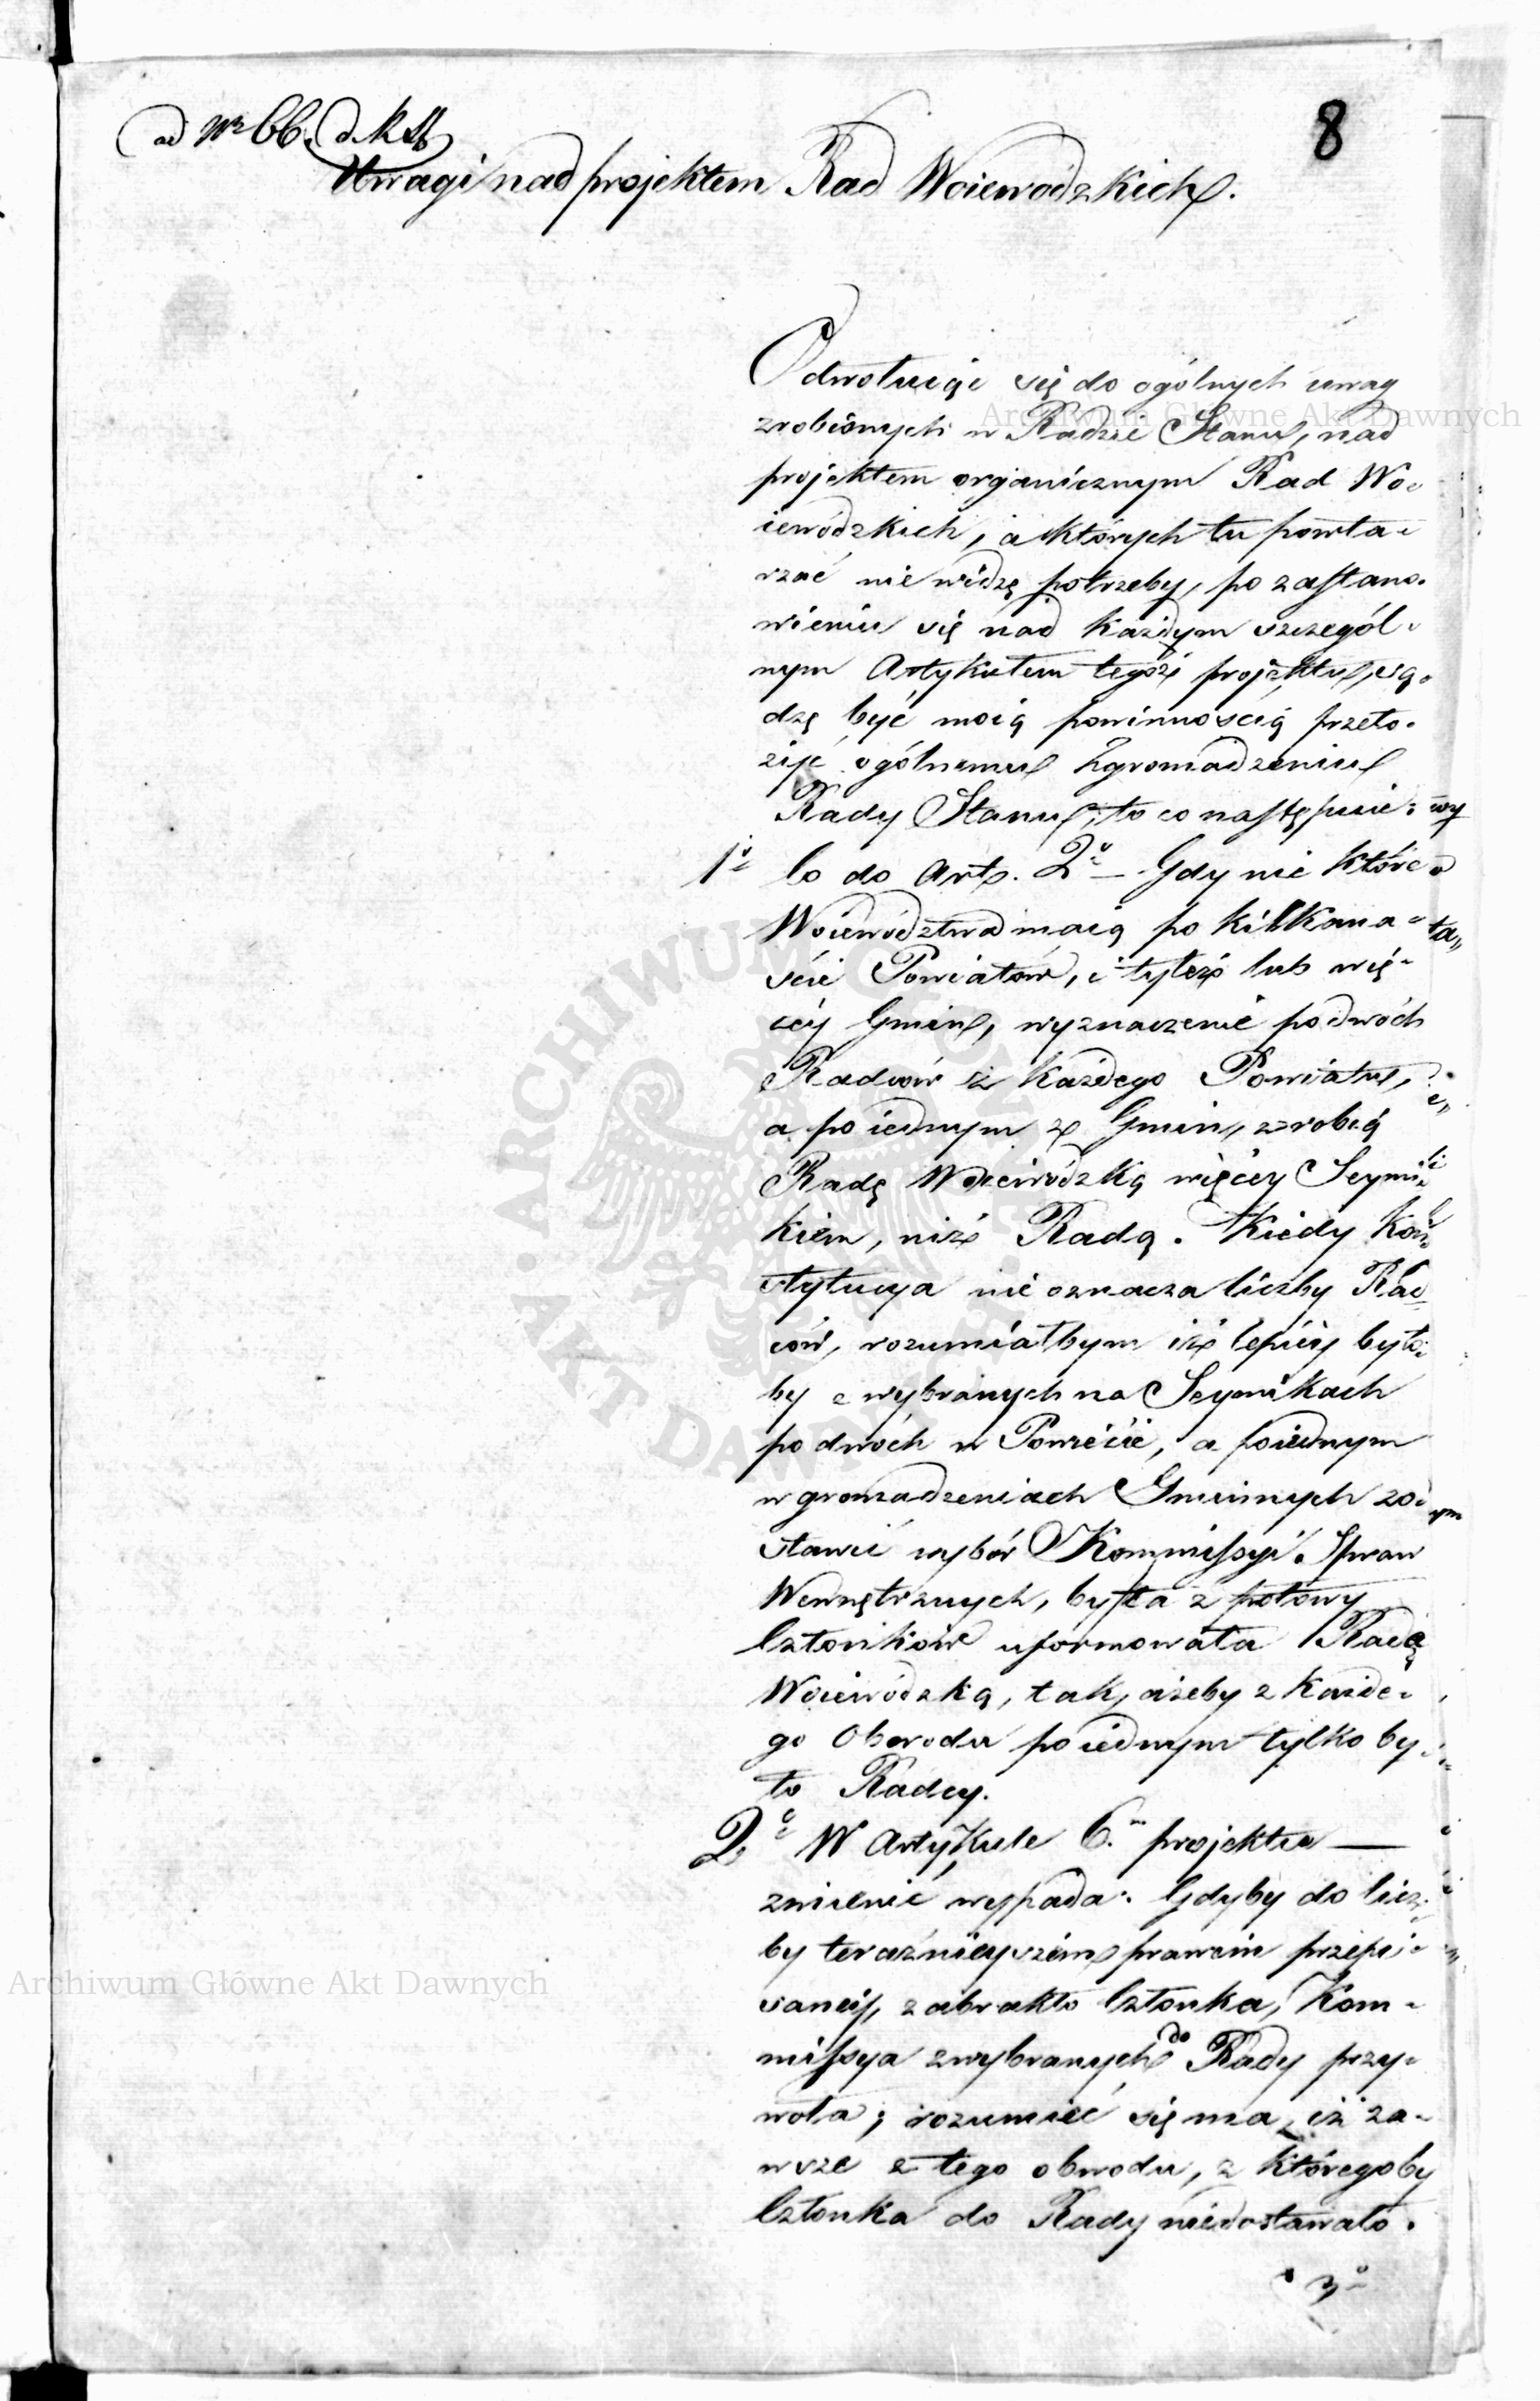 ad Nr 66. d. k. St.
8
Uwagi nad projektem Rad Woiewodzkich.
Odwołuiąc się do ogólnych uwag
zrobionych w Radzie Stanu, nad
projektem organicznym Rad Wo-
iewódzkich, a których tu powta-
rzać nie widzę potrzeby, po zastano-
wieniu się nad każdym szczegól-
nym Artykułem tegoż projektu, są-
dzę być moią powinnoscią przeło-
żyć ogólnemu Zgromadzeniu
Rady Stanu, to co następuie:
1o Co do Art. 2o — Gdy nie które
Woiewództwa maią po kilkana-
ście Powiatów, i tyleż lub wię-
céy Gmin, wyznaczenie po dwóch
Radców z każdego Powiatu,
a po iednym z Gmin, zrobią
Radę Woiewódzką więcey Seymi-
kiem, niż Radą. Kiedy Kon-
stytucya nie oznacza liczby Rad-
ców, rozumiałbym iż lepiéy było-
by z wybranych na Seymikach
po dwóch w Powiecie, a po iednym
w gromadzeniach Gminnych zo-
stawić wybór Kommissyi Spraw
Wewnętrznych, by ta z połowy
Członków uformowała Radę
Woiewódzką, tak, ażeby z każde-
go Obwodu po iednym tylko by-
ło Radcy.
2o W Artykule 6.m projektu —
zmienić wypada: Gdyby do licz-
by teraźnieyszém prawem przepi-
sanéy, zabrakło Członka, Kom-
missya z wybranych do Rady przy-
woła; rozumieć się ma, iż za-
wsze z tego obwodu, z któregoby
Członka do Rady niedostawało.
3o
Archiwum Główne Akt Dawnych
Archiwum Główne Akt Dawnych
ARCHIWUM GŁÓWNE AKT DAWNYCH